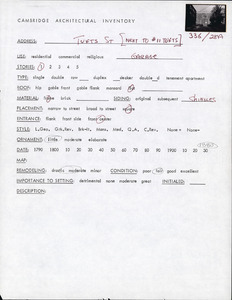 CAMBRIDGE ARCHITECTURAL INVENTORY
336/2EA
ADDRESS: TUFTS ST [NEXT TO #11 TUFTS]
USE: residential commercial religious GARAGE
STORIES: 1 2 3 4 5
TYPE: single double row duplex decker double d tenement apartment
ROOF: hip gable front gable flank mansard
MATERIAL: brick SIDING: original subsequent SHINGLES
PLACEMENT: narrow to street broad to street
ENTRANCE: flank front side front center
STYLE: L.Geo. Gk.Rev. Ital. Mans. Med. Q.A. C.Rev. None
ORNAMENT: little moderate elaborate
DATE: 1790 1800 10 20 30 40 50 60 70 80 90 1900 10 20 30
MAP:
REMODELING: drastic moderate minor CONDITION: poor fair good excellent
IMPORTANCE TO SETTING: detrimental none moderate great INITIALED:
DESCRIPTION: